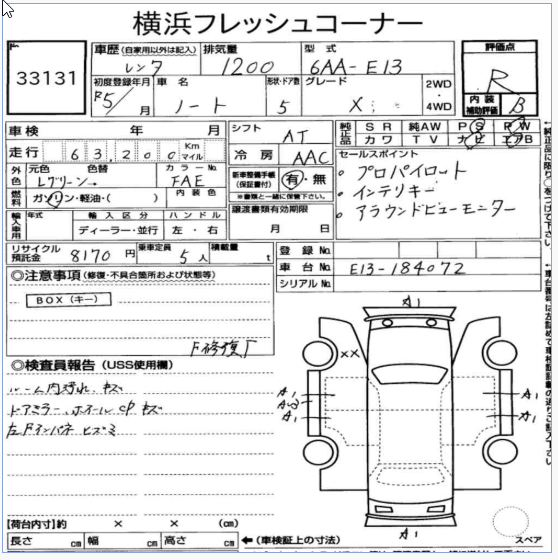 横浜フレッシュコーナー
No.
33131
車歴 (自家用以外は記入)
レンタ
排気量
1200
型式
6AA-E13
評価点
R
初度登録年月
R5/
月
車名
ノート
形状・ドア数
5
グレード
X
2WD
4WD
内装
補助評価
B
車検 年 月
走行 6 3,2 0 0 Km マイル
シフト
AT
純正品
SR 純AW PS PW
カワ TV ナビ エアB
外色
元色 色替
Lグリーン
カラーNo.
FAE
冷房
AAC
セールスポイント
・プロパイロット
・インテリキー
・アラウンドビューモニター
燃料
ガソリン・軽油・( )
内装色
新車整備手帳
(保証書付)
有・無
※書類と一緒に保管して下さい。
輸入車用
年式
輸入区分
ディーラー・並行
ハンドル
左・右
譲渡書類有効期限
月 日
リサイクル
預託金
8170 円
乗車定員
5 人
積載量
t
登録No.
車台No.
E13-184072
シリアルNo.
◎注意事項 (修復・不具合箇所および状態等)
BOX(キー)
F修復
◎検査員報告 (USS使用欄)
ルーム内汚れ、キズ
ドアミラー、ホイールCP キズ
左Fインパネ ヒズミ
A1
××
A1
A2
A1
A1
A1
A1
スペア
【荷台内寸】約 × × (cm)
長さ cm 幅 cm 高さ cm
←(車検証上の寸法)